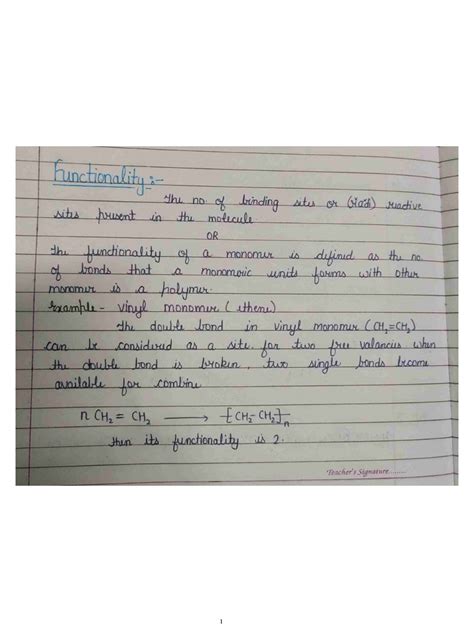 Functionality :-
The no. of binding sites or reactive
sites present in the molecule
OR
The functionality of a monomer is defined as the no.
of bonds that a monomeric units forms with other
monomer is a polymer.
Example - vinyl monomer ( ethene )
The double bond in vinyl monomer ( CH₂=CH₂ )
can be considered as a site for two free valancies when
the double bond is broken, two single bonds become
available for combine
n CH₂ = CH₂ ⟶ -[CH₂-CH₂]-n
Then its functionality is 2.
Teacher's Signature........
1